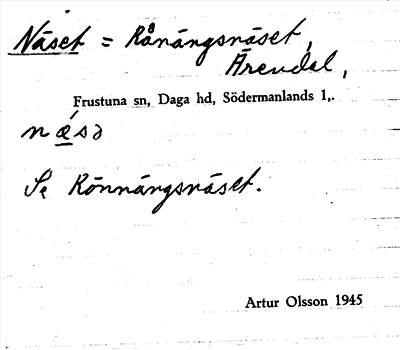 Näset = Rånängsnäset,
Ärendal,
Frustuna sn, Daga hd, Södermanlands l,.
næ´sə
Se Rönnängsnäset.
Artur Olsson 1945